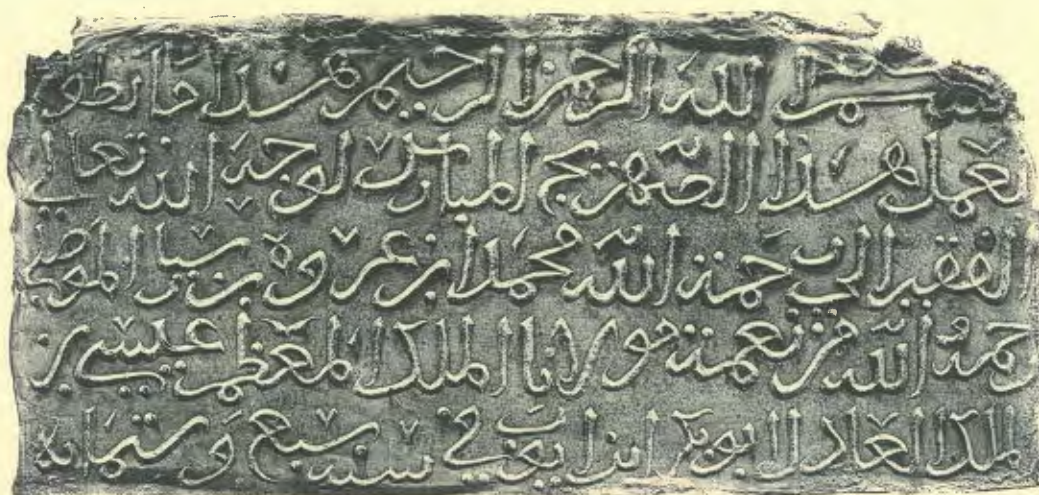 بسم الله الرحمن الرحيم هذا ما تطوع
بعمل هذا الصهريج المبارك لوجه الله تعالى
الفقير الى رحمة الله محمد ابن عروة بن سيار الموصلي
رحمه الله من نعمة مولانا الملك المعظم عيسى بن
الملك العادل ابو بكر ابن ايوب في سنة سبع وستمايه